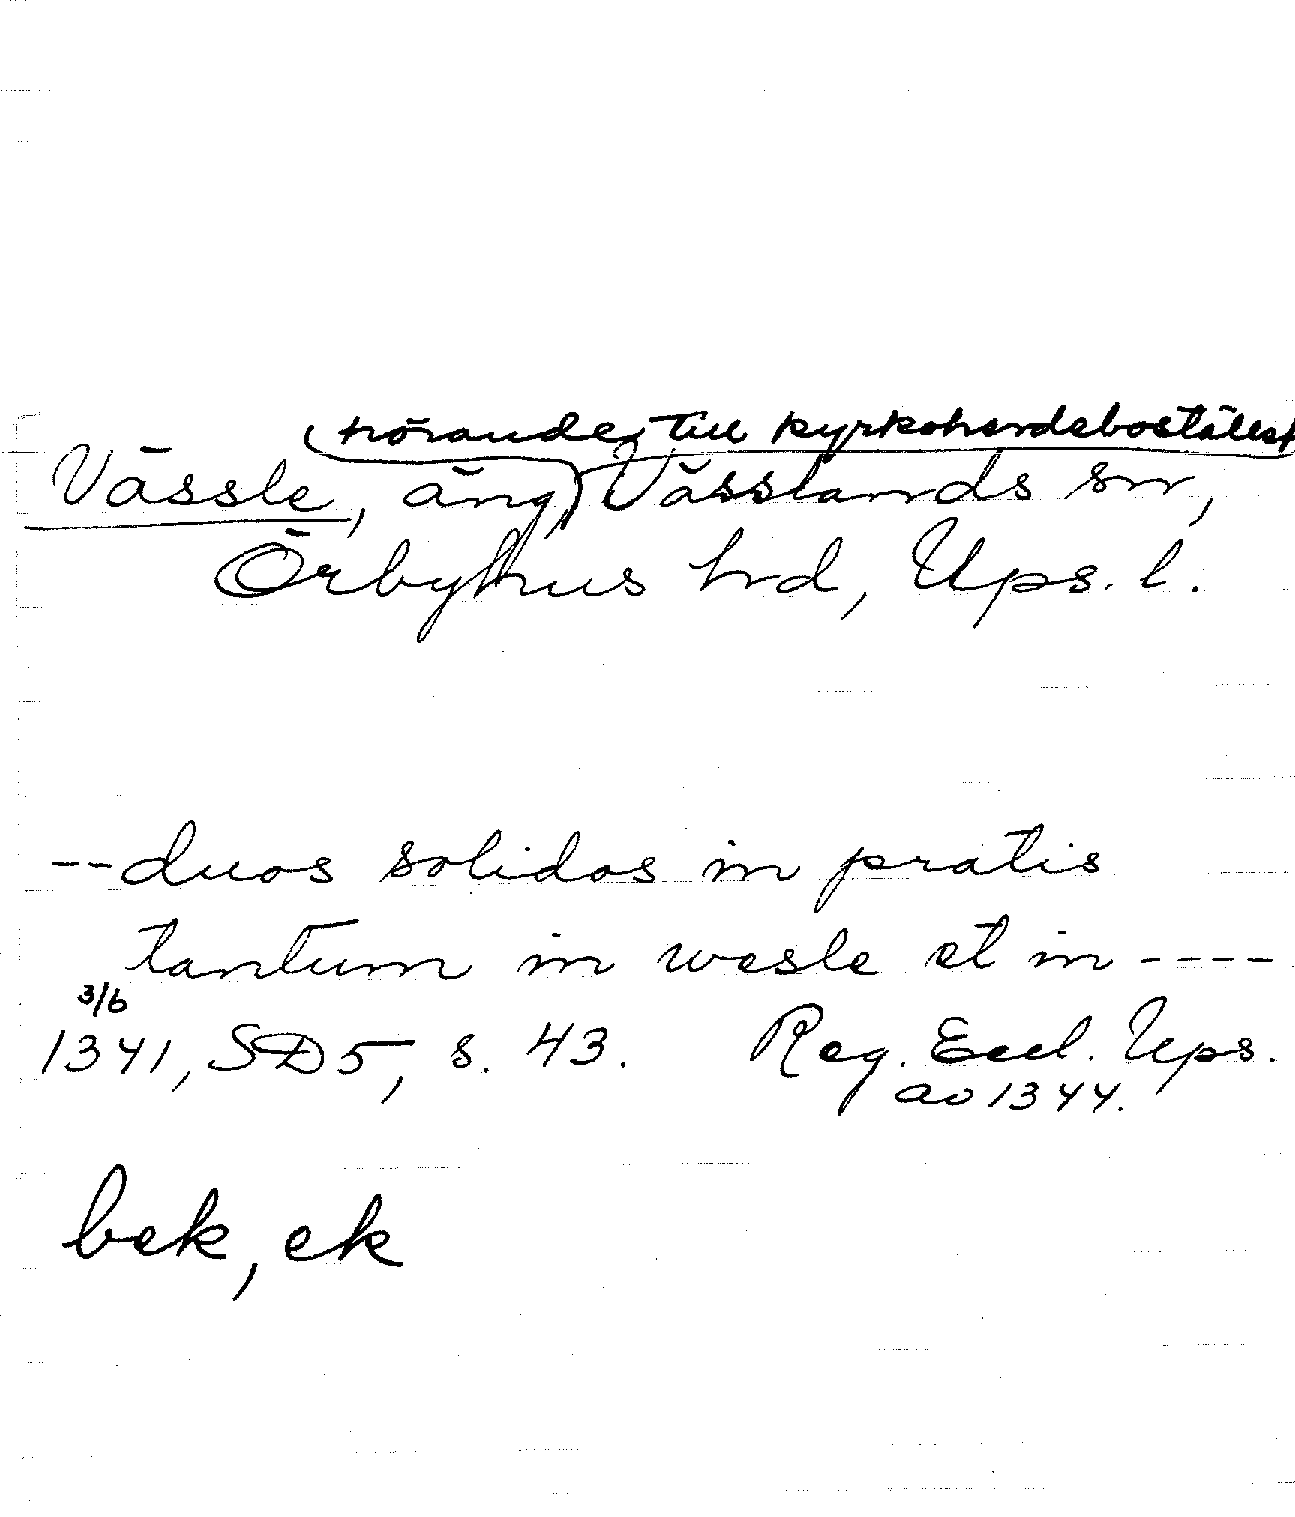 (hörande till kyrkoherdebostället
Vässle, äng) Vässlands sn,
Örbyhus hrd, Ups. l.
--duos solidos in pratis
tantum in wesle et in ----
3/6
1341, SD5, s. 43. Reg. Eccl. Ups.
ao 1344.
bek, ek